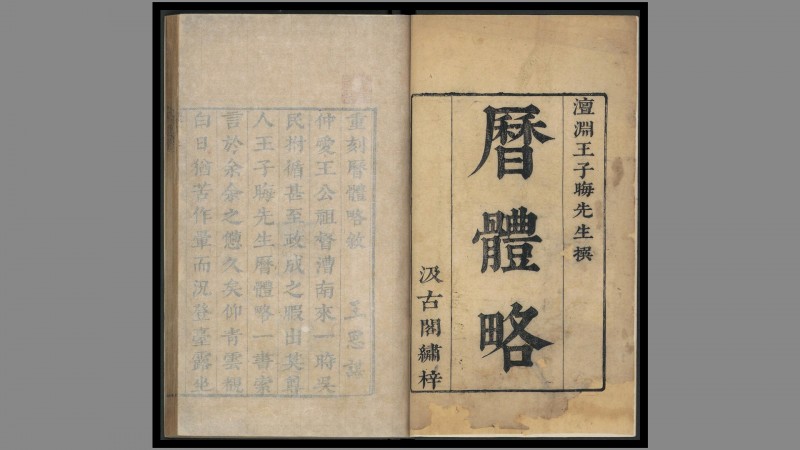 澶淵王子晦先生撰
曆體略
汲古閣繡梓
重刻曆體略敘
仲愛王公祖督漕南來一時吳
民拊循甚至政成之暇出其尊
人王子晦先生曆體略一書索
言於余余之憊久矣仰青雲觀
白日猶苦作暈而況登臺露坐